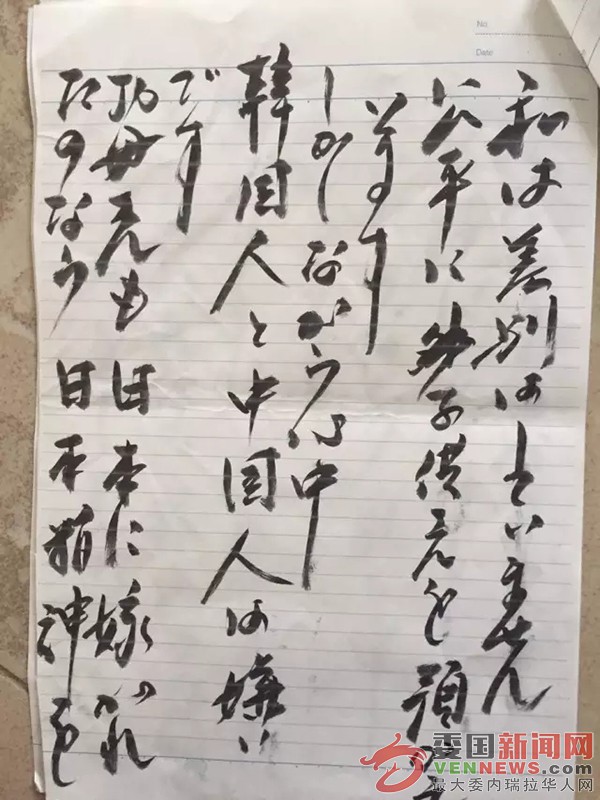 No.
Date
私は差別はしていません
公平に お子供さんを預
います
しかしながら心中
韓国人と中国人は嫌い
です
お母さんも日本に嫁がれ
たのなら 日本精神を
委国新闻网
VENNEWS.COM
最大委内瑞拉华人网